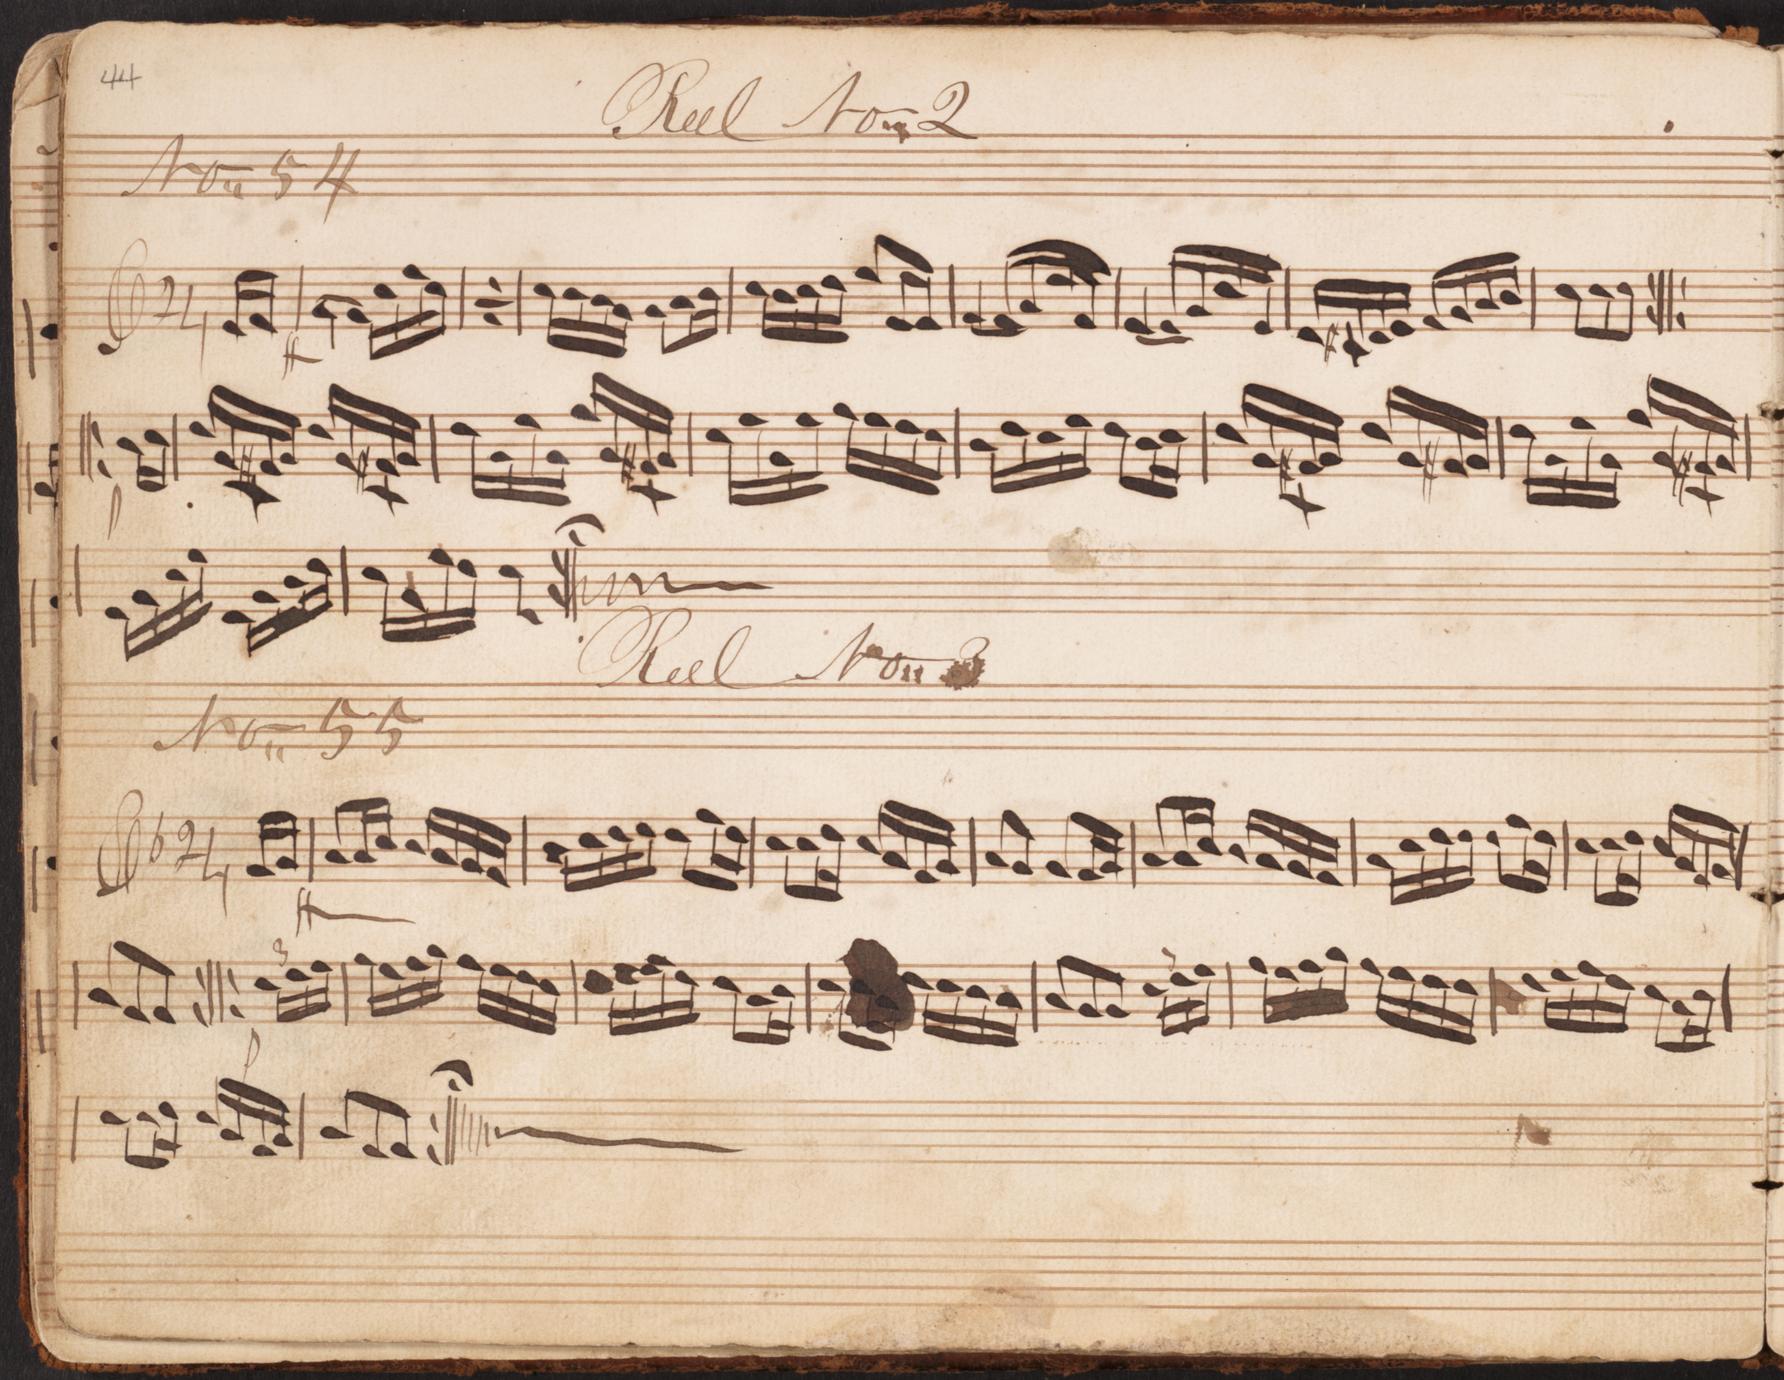 44
Reel No„ 2
No„ 54
2/4
ff
p
Reel No„ 3
No„ 55
2/4
ff
3 3
p